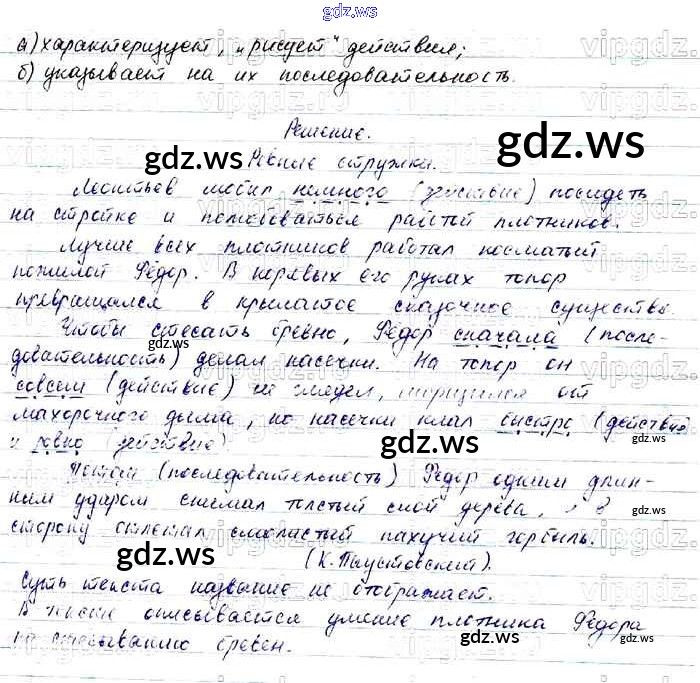 gdz.ws
а) характеризует, „рисует“ действия;
б) указывает на их последовательность.
Решение.
gdz.ws
Ровные стружки. gdz.ws
Леонтьев любил немного (действие) посидеть
на стройке и полюбоваться работой плотников.
Лучше всех плотников работал косматый
пожилой Фёдор. В корявых его руках топор
превращался в крылатое сказочное существо.
gdz.ws gdz.ws
Чтобы стесать бревно, Фёдор сначала (после-
довательность) делал насечки. На топор он
gdz.ws
совсем (действие) не глядел, щурился от
махорочного дыма, но насечки клал быстро (действие)
и ровно (действие). gdz.ws
Потом (последовательность) Фёдор одним длин-
ным ударом снимал толстый слой дерева, и в
gdz.ws
сторону отлетал смолистый пахучий горбыль.
gdz.ws (К. Паустовский).
Суть текста название не отображает.
В тексте описывается умение плотника Фёдора
gdz.ws gdz.ws
бревен.